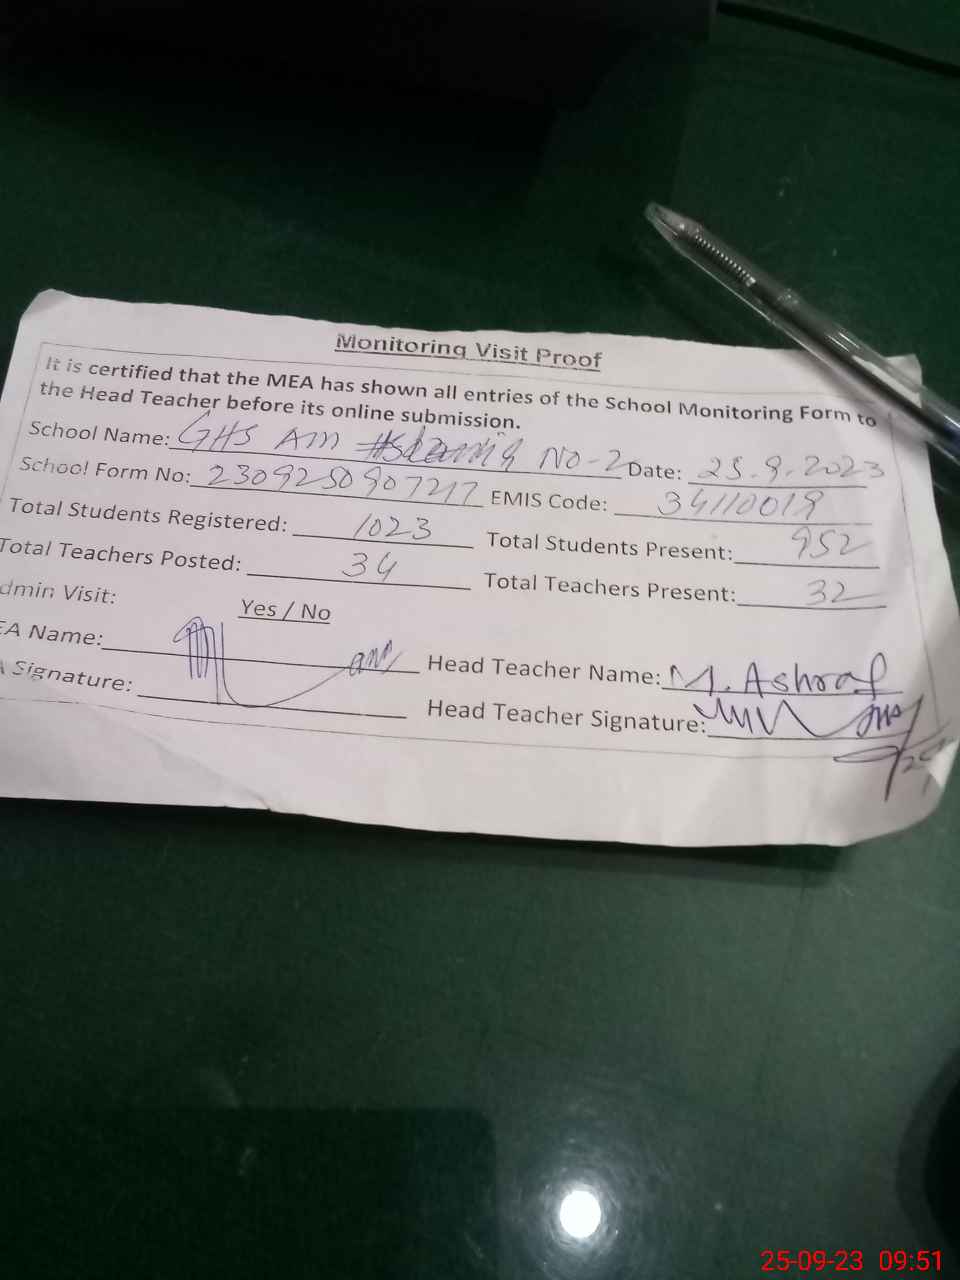 Monitoring Visit Proof
It is certified that the MEA has shown all entries of the School Monitoring Form to
the Head Teacher before its online submission.
School Name: GHS AM No-2 Date: 25.9.2023
School Form No: 2309250907217 EMIS Code: 34110019
Total Students Registered: 1023 Total Students Present: 952
Total Teachers Posted: 34 Total Teachers Present: 32
dmin Visit: Yes / No
EA Name: Head Teacher Name: M. Ashraf
A Signature: Head Teacher Signature:
25-09-23 09:51